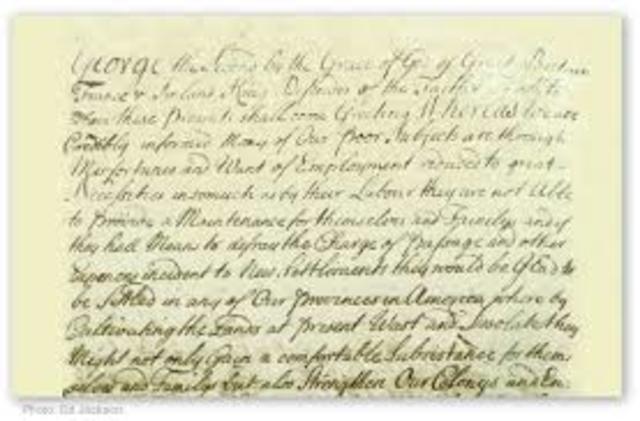 George the Second by the Grace of God of Great Britain
France & Ireland King Defender of the Faith To all to
whom these Presents shall come Greeting Whereas we are
Credibly informed Many of Our Poor Subjects are through
Misfortunes and Want of Employment reduced to great
Necessities insomuch as by their Labour they are not Able
to provide a Maintenance for themselves and Family and if
they had Means to defray the Charge of Passage and other
Expences incident to New Settlements they would be Glad to
be Settled in any of Our Provinces in America where by
Cultivating the Lands at present Wast and desolate they
Might not only Gain a comfortable Subsistance for them
selves and Family but also Strengthen Our Colonys and En
Photo: Ed Jackson